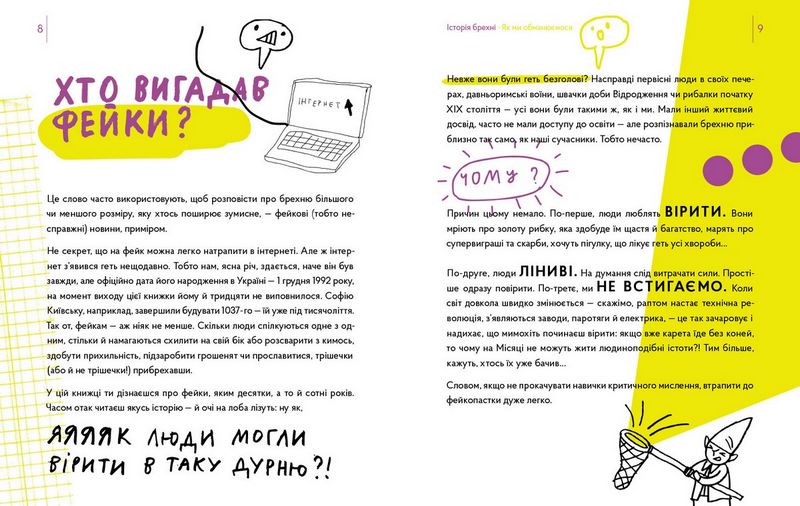 8
ХТО ВИГАДАВ
ФЕЙКИ?
ІНТЕРНЕТ
Це слово часто використовують, щоб розповісти про брехню більшого
чи меншого розміру, яку хтось поширює зумисне, — фейкові (тобто не-
справжні) новини, приміром.
Не секрет, що на фейк можна легко натрапити в інтернеті. Але ж інтер-
нет з’явився геть нещодавно. Тобто нам, ясна річ, здається, наче він був
завжди, але офіційно дата його народження в Україні — 1 грудня 1992 року,
на момент виходу цієї книжки йому й тридцяти не виповнилося. Софію
Київську, наприклад, завершили будувати 1037-го — їй уже під тисячоліття.
Так от, фейкам — аж ніяк не менше. Скільки люди спілкуються одне з од-
ним, стільки й намагаються схилити на свій бік або розсварити з кимось,
здобути прихильність, підзаробити грошенят чи прославитися, трішечки
(або й не трішечки!) прибрехавши.
У цій книжці ти дізнаєшся про фейки, яким десятки, а то й сотні років.
Часом отак читаєш якусь історію — й очі на лоба лізуть: ну як,
ЯЯЯЯК ЛЮДИ МОГЛИ
ВІРИТИ В ТАКУ ДУРНЮ?!
Історія брехні · Як ми обманюємося
9
Невже вони були геть безголові? Насправді первісні люди в своїх пече-
рах, давньоримські воїни, швачки доби Відродження чи рибалки початку
XIX століття — усі вони були такими ж, як і ми. Мали інший життєвий
досвід, часто не мали доступу до освіти — але розпізнавали брехню при-
близно так само, як наші сучасники. Тобто нечасто.
ЧОМУ?
Причин цьому немало. По-перше, люди люблять ВІРИТИ. Вони
мріють про золоту рибку, яка здобуде їм щастя й багатство, марять про
супервиграші та скарби, хочуть пігулку, що лікує геть усі хвороби...
По-друге, люди ЛІНИВІ. На думання слід витрачати сили. Прості-
ше одразу повірити. По-третє, ми НЕ ВСТИГАЄМО. Коли
світ довкола швидко змінюється — скажімо, раптом настає технічна ре-
волюція, з’являються заводи, паротяги й електрика, — це так зачаровує і
надихає, що мимохіть починаєш вірити: якщо вже карета їде без коней,
то чому на Місяці не можуть жити людиноподібні істоти?! Тим більше,
кажуть, хтось їх уже бачив...
Словом, якщо не прокачувати навички критичного мислення, втрапити до
фейкопастки дуже легко.